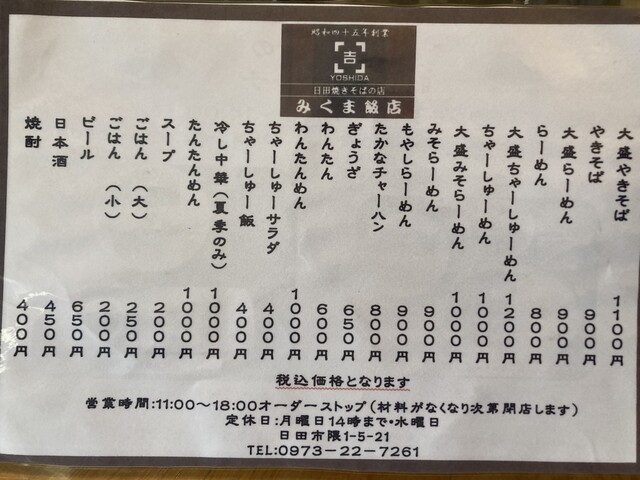 昭和四十五年創業
吉
YOSHIDA
日田焼きそばの店
みくま飯店
大盛やきそば 1100円
やきそば 900円
大盛らーめん 900円
らーめん 800円
大盛ちゃーしゅーめん 1200円
ちゃーしゅーめん 1000円
大盛みそらーめん 1000円
みそらーめん 900円
もやしらーめん 900円
たかなチャーハン 800円
ぎょうざ 650円
わんたん 600円
わんたんめん 1000円
ちゃーしゅーサラダ 600円
ちゃーしゅー飯 400円
冷し中華（夏季のみ） 1000円
たんたんめん 1000円
スープ 200円
ごはん（大） 250円
ごはん（小） 200円
ビール 650円
日本酒 450円
焼酎 400円
税込価格となります
営業時間:11:00～18:00オーダーストップ(材料がなくなり次第閉店します)
定休日:月曜日14時まで・水曜日
日田市隈1-5-21
TEL:0973-22-7261